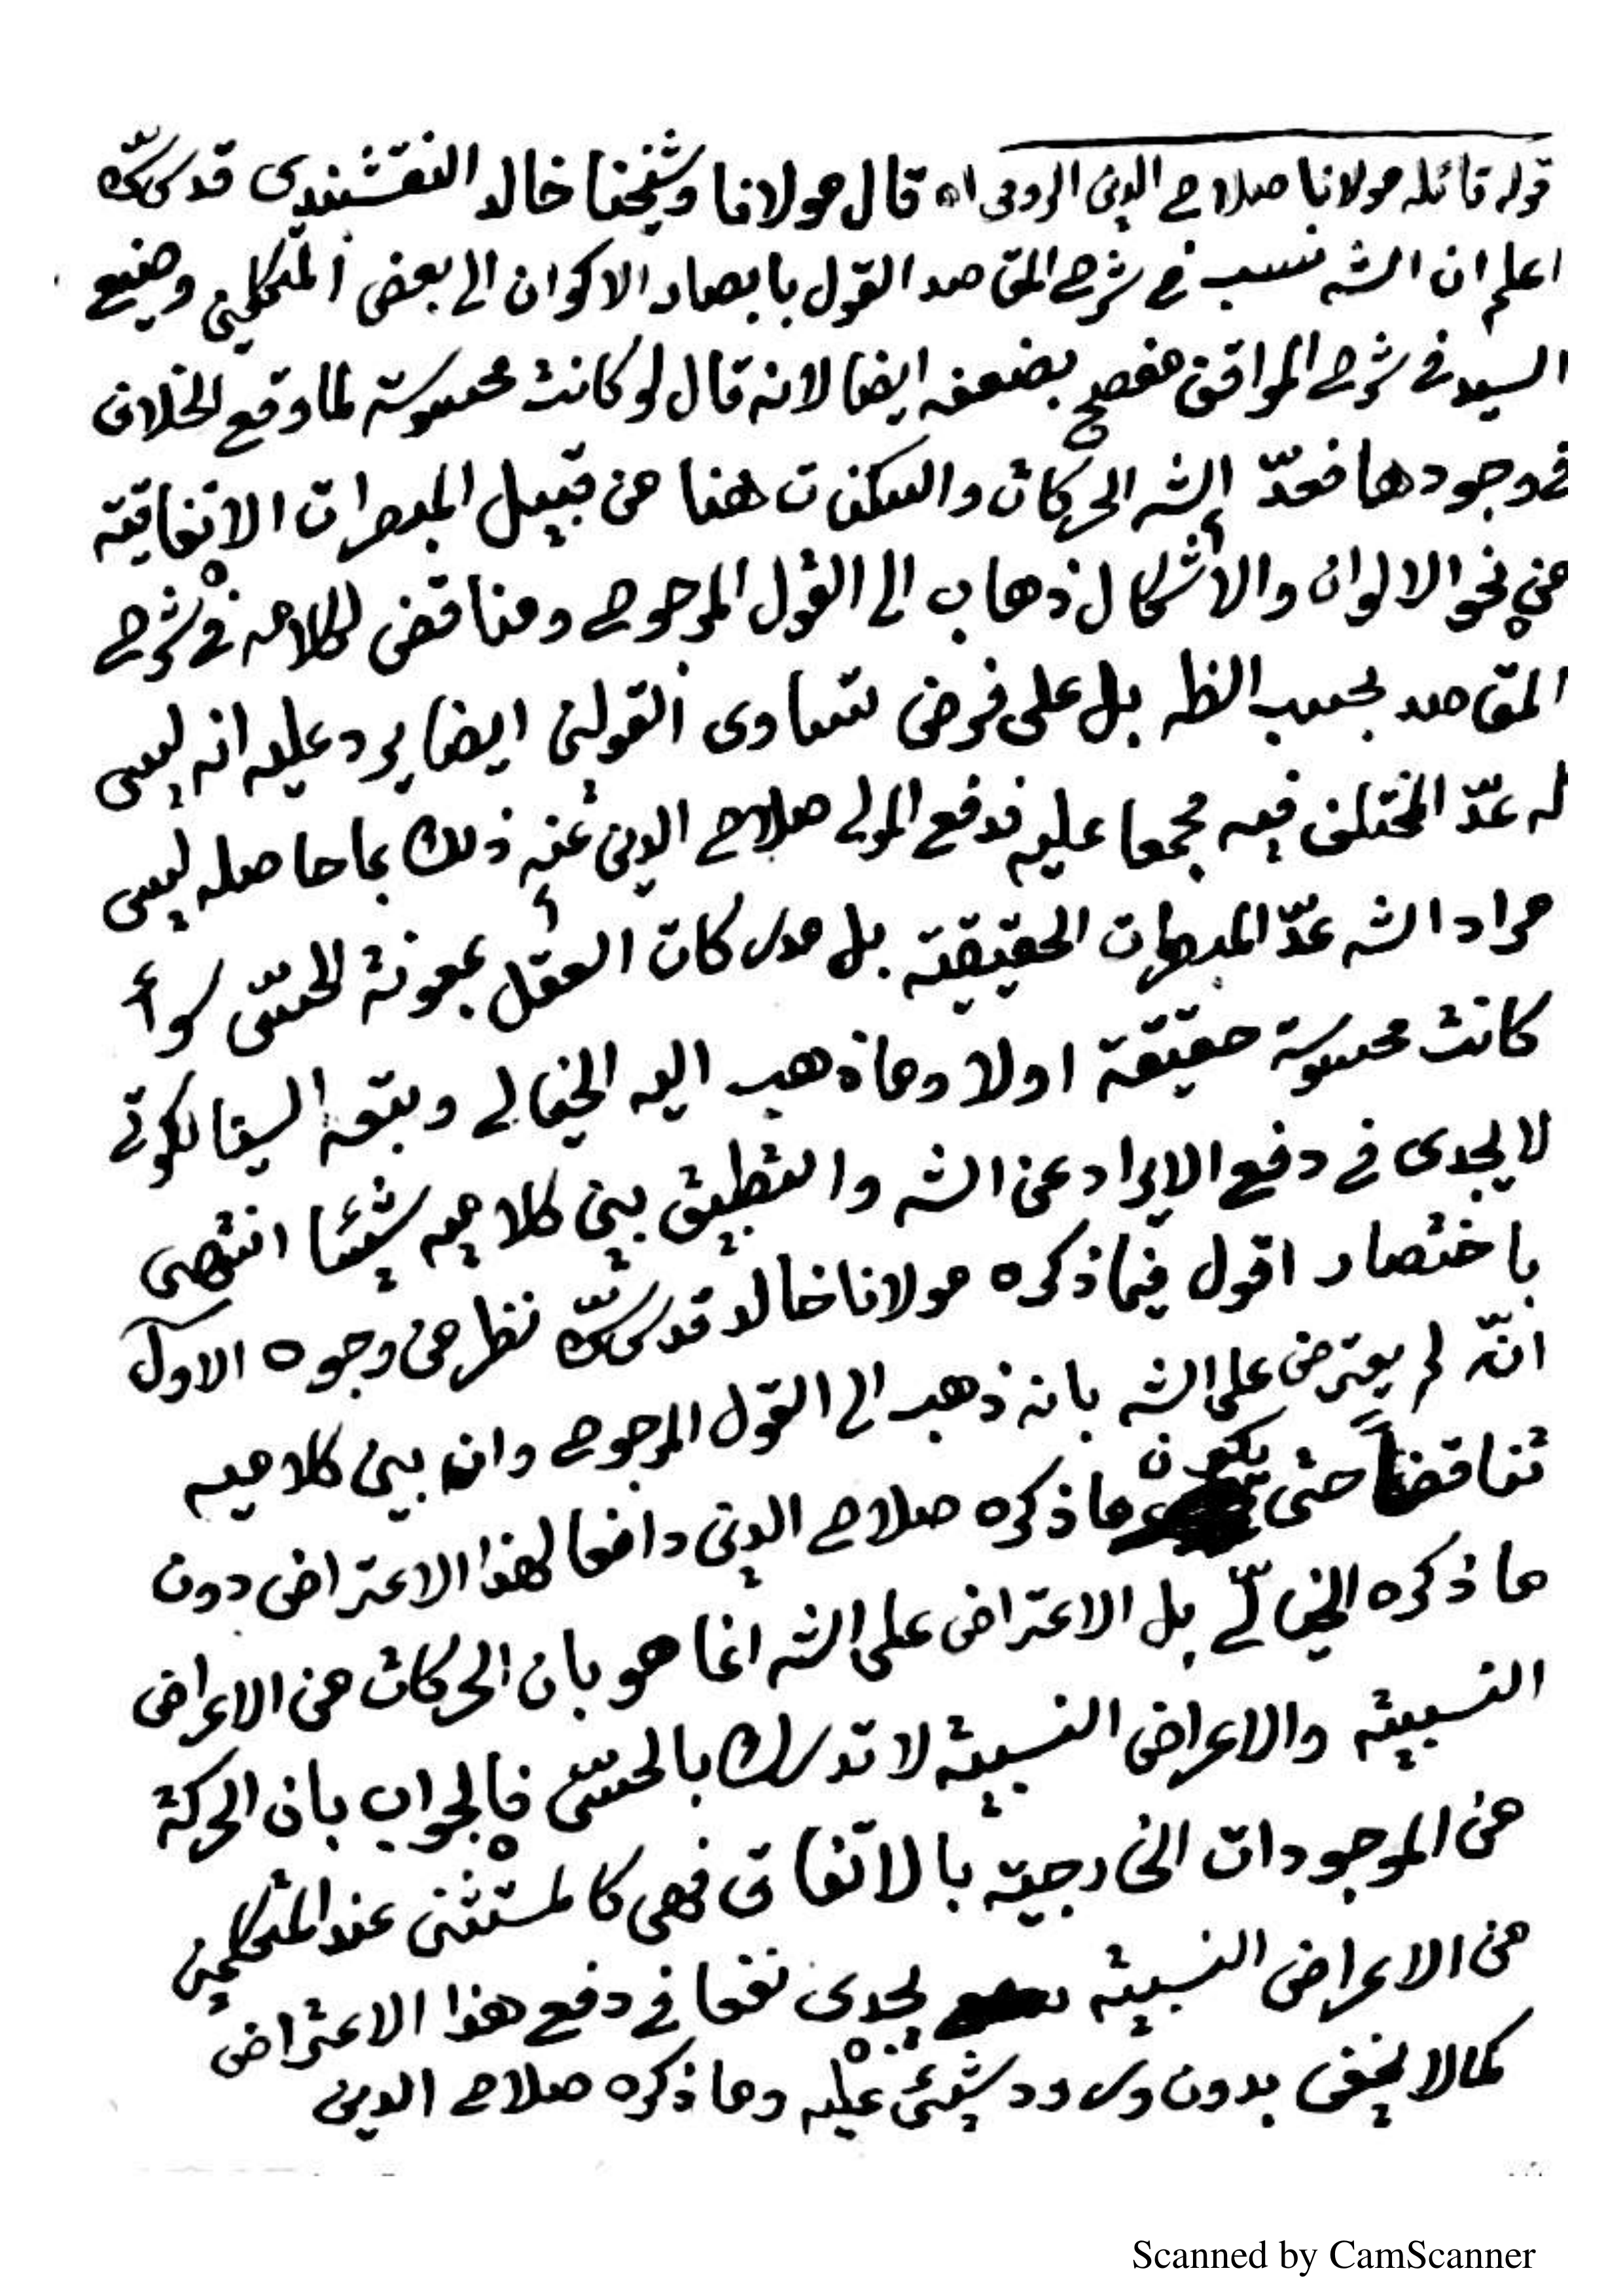 قوله قائله مولانا صلاح الدين الرومى اه قال مولانا وشيخنا خالد النقشبندى قدس سره
اعلم ان الشه نسب في شرح المقاصد القول بابصار الاكوان الى بعض المتكلمين وصنيع
السيد في شرح المواقف مفصح بضعفه ايضا لانه قال لو كانت محسوسة لما وقع الخلاف
في وجودها فعدّ الشه الحركات والسكنات هنا من قبيل المبصرات الاتفاقية
من نحو الالوان والاشكال ذهاب الى القول المرجوح ومناقض لكلامه في شرح
المقاصد بحسب الظه بل على فرض تساوى القولين ايضا يرد عليه انه ليس
له عدّ المختلف فيه مجمعا عليه فدفع المولى صلاح الدين عنه ذلك بما حاصله ليس
مراد الشه عدّ المبصرات الحقيقية بل مدركات العقل بمعونة الحسّ سوأ
كانت محسوسة حقيقة اولا وما ذهب اليه الخيالى وتبعه السيالكوتى
لا يجدى في دفع الايراد عن الشه والتطبيق بين كلاميه شيئا انتهى
باختصار اقول فيما ذكره مولانا خالد قدس سره نظر من وجوه الاول
انّه لم يعترض على الشه بانه ذهب الى القول المرجوح وان بين كلاميه
تناقضاً حتى يكون ما ذكره صلاح الدين دافعا لهذا الاعتراض دون
ما ذكره الخيالىّ بل الاعتراض على الشه انما هو بان الحركات من الاعراض
النسبية والاعراض النسبية لا تدرك بالحسّ فالجواب بان الحركة
من الموجودات الخارجية بالاتفاق فهى كالمستثنى عند المتكلمين
من الاعراض النسبية يجدى نفعا في دفع هذا الاعتراض
كما لا يخفى بدون ورود شيئ عليه وما ذكره صلاح الدين
Scanned by CamScanner